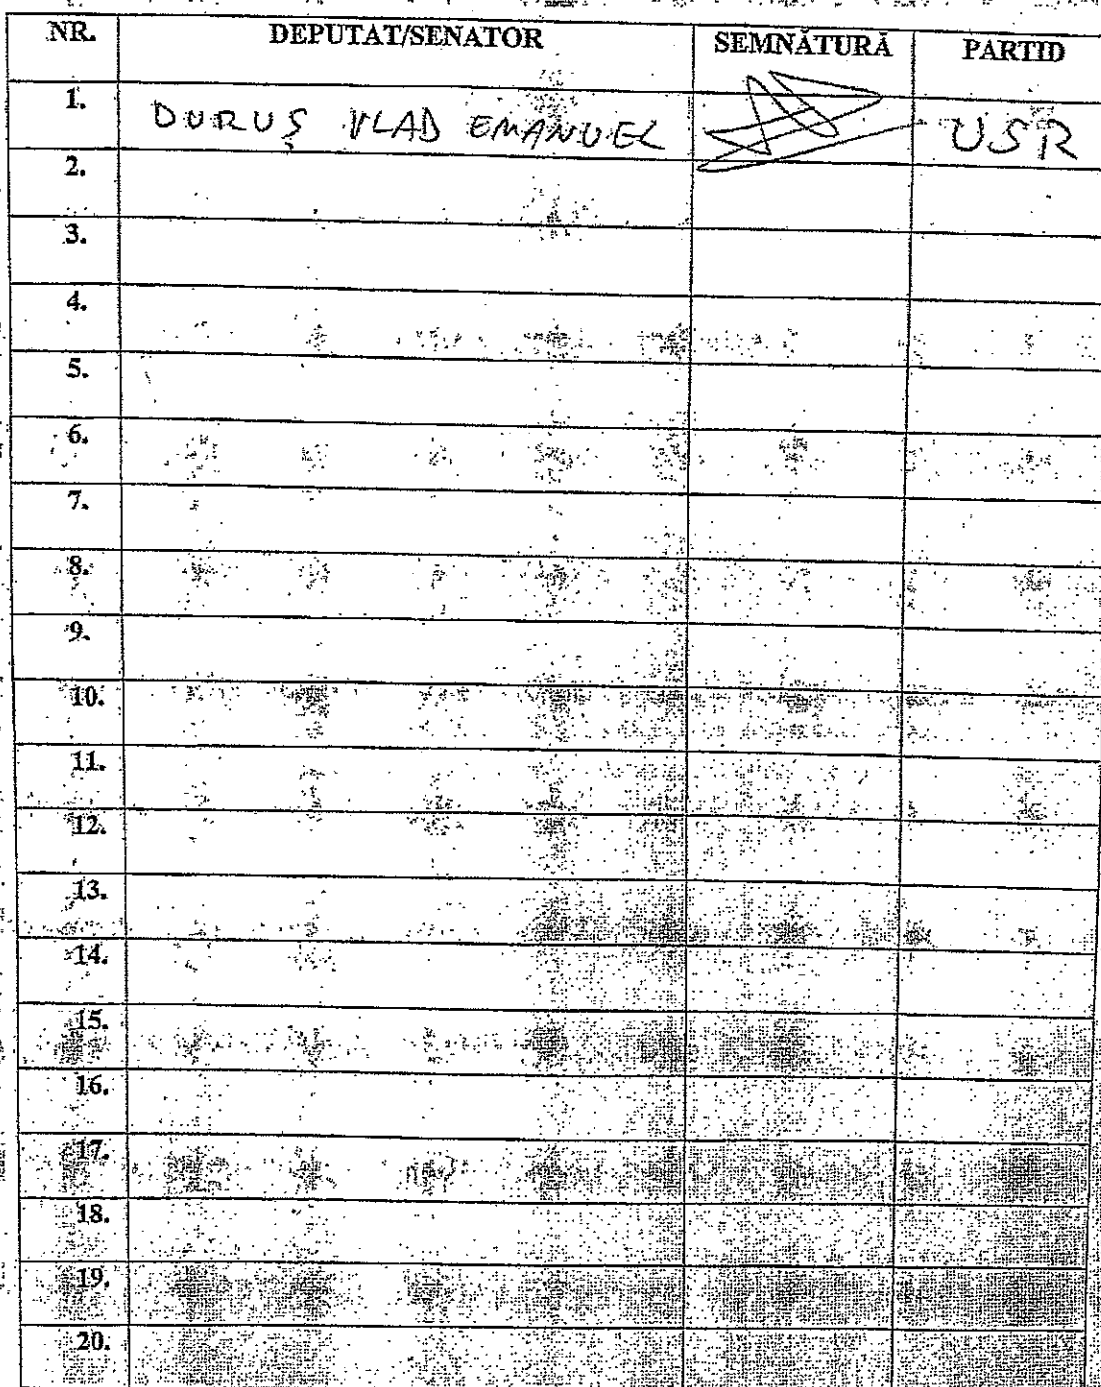 NR. DEPUTAT/SENATOR SEMNĂTURĂ PARTID
1. DURUȘ VLAD EMANUEL USR
2.
3.
4.
5.
6.
7.
8.
9.
10.
11.
12.
13.
14.
15.
16.
17.
18.
19.
20.